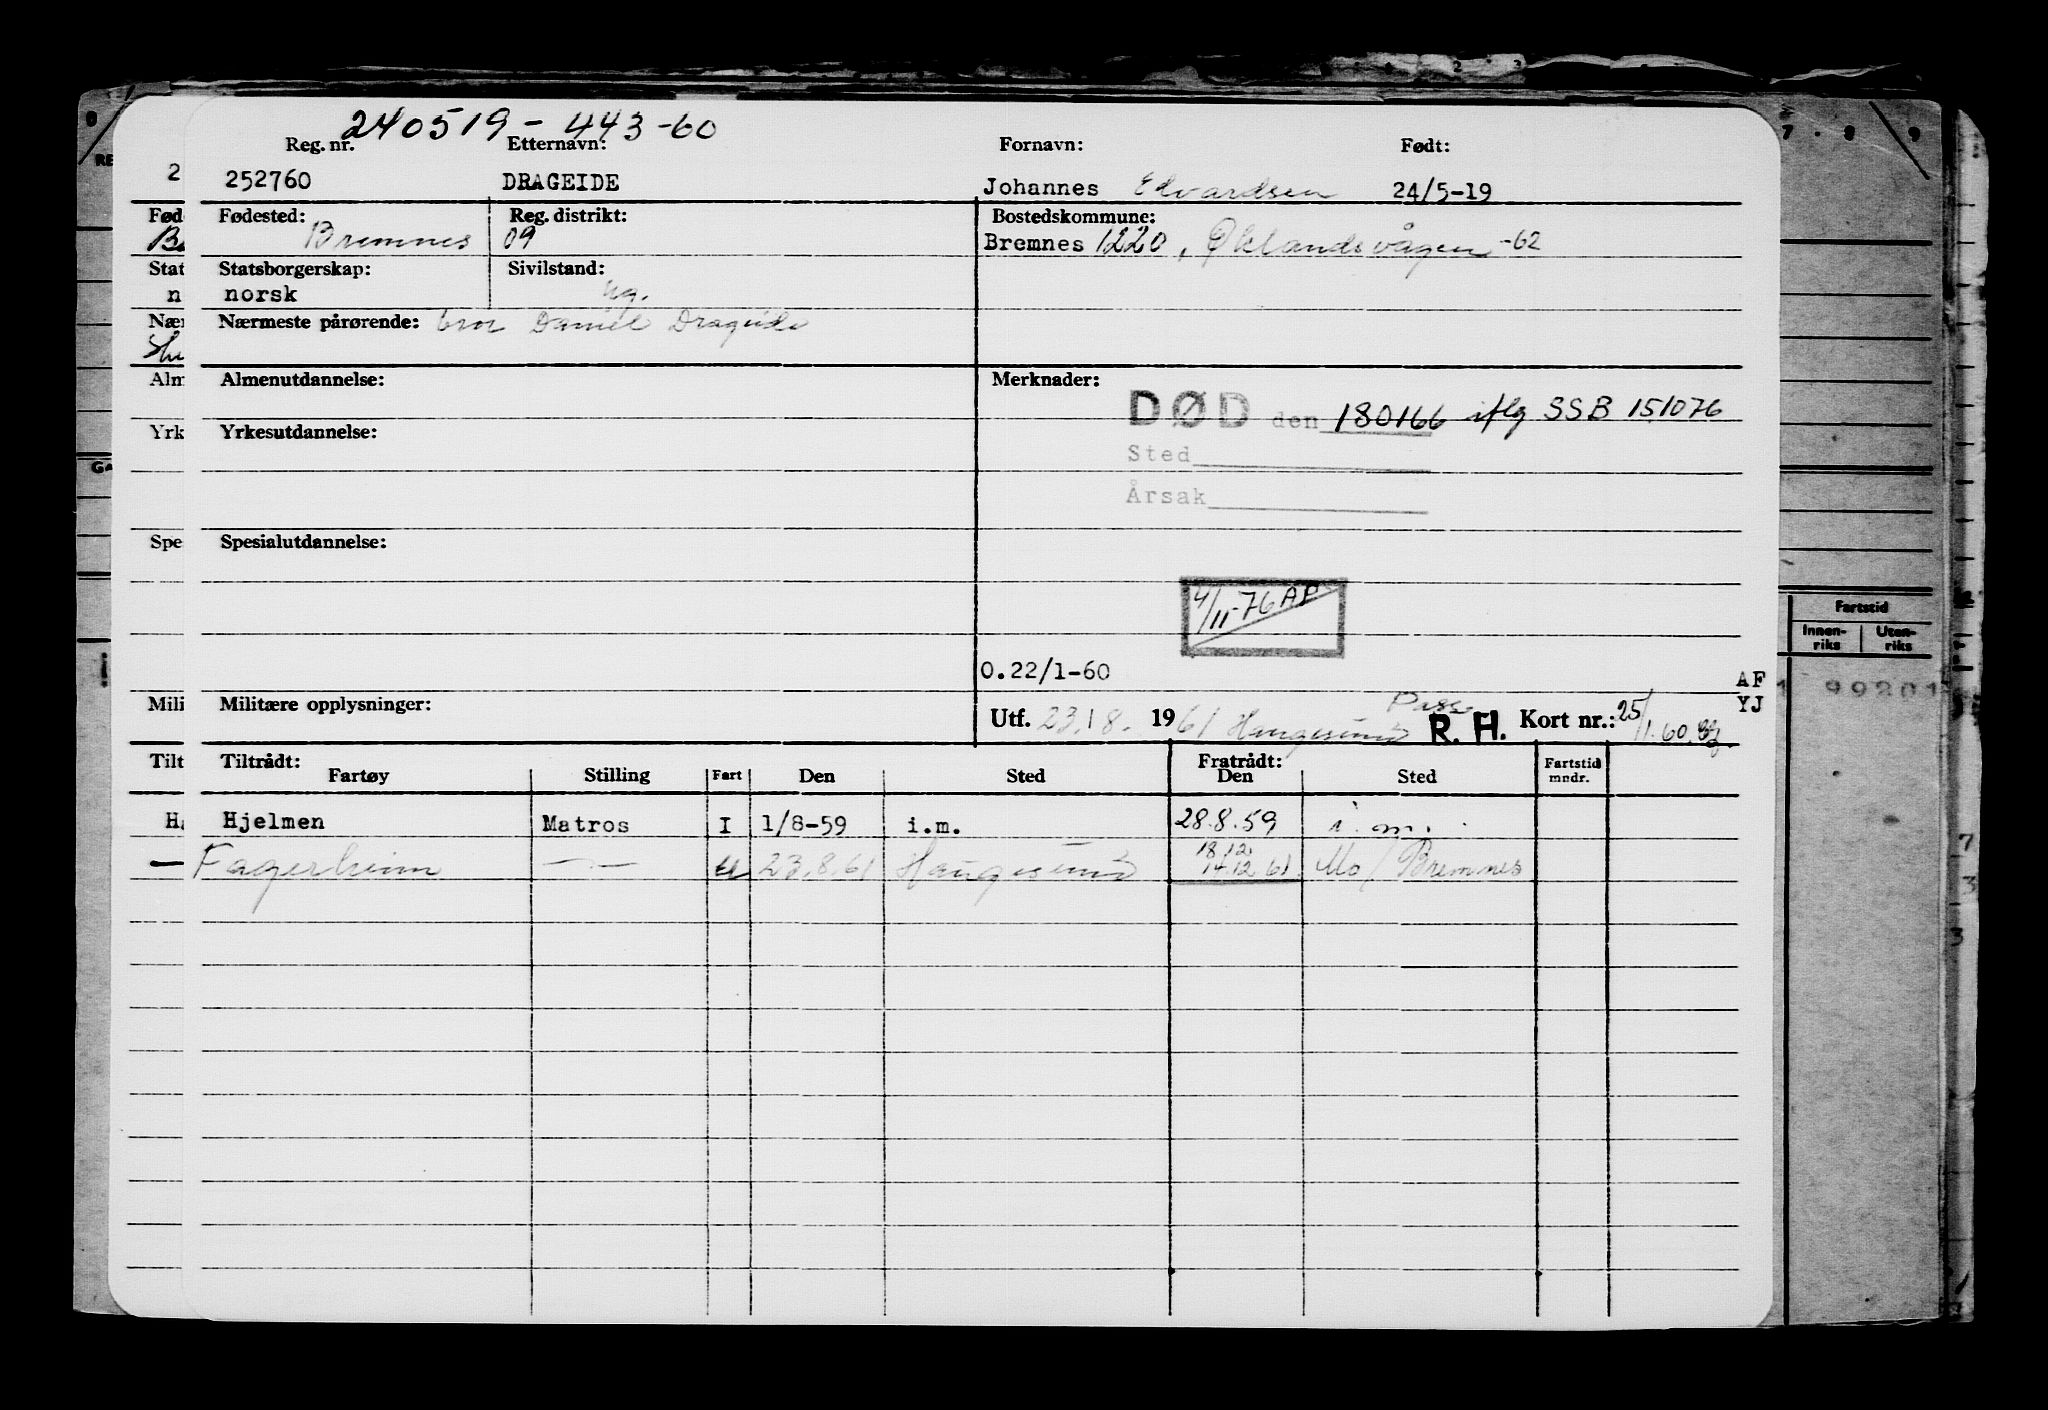 240519-443-60
Reg. nr. Etternavn: Fornavn: Født:
252760 DRAGEIDE Johannes Edvardsen 24/5-19
Fødested: Reg. distrikt: Bostedskommune:
Bremnes 09 Bremnes 1220, Øklandsvågen -62
Statsborgerskap: Sivilstand:
norsk ug.
Nærmeste pårørende: bror Daniel Drageide
Almenutdannelse: Merknader:
DØD den 180166 iflg SSB 151076
Yrkesutdannelse:
Sted
Årsak
Spesialutdannelse:
4/11-76 AF
0.22/1-60
AF
YJ
Militære opplysninger: Utf. 23/8. 1961 Haugesund Pass R.H. Kort nr.: 25/1.60.
Tiltrådt: Fratrådt: Fartstid
Fartøy Stilling Fart Den Sted Den Sted mndr.
Hjelmen Matros I 1/8-59 i.m. 28.8.59 i.m.
18.12
Fagerheim —"— u 23.8.61 Haugesund 14.12.61 Mo/Bremnes
Fød
Stat
n
Nær
Alm
Yrk
Spe
Mili
Tilt
7 . 8 9
Fartstid
Innen-
riks
Uten-
riks
99201